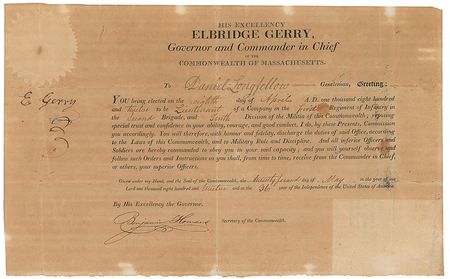 HIS EXCELLENCY
ELBRIDGE GERRY,
Governor and Commander in Chief
OF THE
COMMONWEALTH OF MASSACHUSETTS.
To Daniel Longfellow Gentleman, Greeting:
E Gerry
YOU being elected on the eighth day of April A. D. one thousand eight hundred
and twelve to be Lieutenant of a Company in the first Regiment of Infantry in
the second Brigade, and Tenth Division of the Militia of this Commonwealth; reposing
special trust and confidence in your ability, courage, and good conduct, I do, by these Presents, Commission
you accordingly. You will therefore, with honour and fidelity, discharge the duties of said Office, according
to the Laws of this Commonwealth, and to Military Rule and Discipline. And all inferior Officers and
Soldiers are hereby commanded to obey you in your said capacity; and you will yourself observe and
follow such Orders and Instructions as you shall, from time to time, receive from the Commander in Chief,
or others, your superior Officers.
Given under my Hand, and the Seal of the Commonwealth, the twenty second day of May in the year of our
Lord one thousand eight hundred and twelve and in the 36 year of the Independence of the United States of America.
By His Excellency the Governor.
Benjamin Homans Secretary of the Commonwealth.